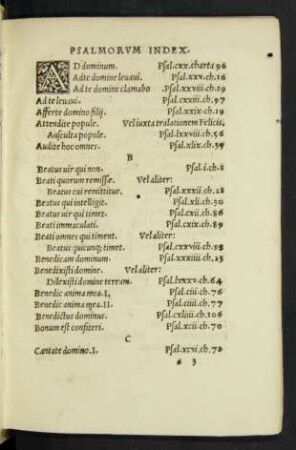 PSALMORVM INDEX.
AD dominum. Psal.cxx.charta 96
Ad te domine leuaui. Psal.xxv.ch.16
Ad te domine clamabo .Psal.xxviii.ch.19
Ad te leuaui. Psal.cxxiii.ch.97
Afferte domino filij. Psal.xxix.ch.19
Attendite popule. Vel iuxta tralationem Felicis,
Ausculta popule. Psal.lxxviii.ch.56
Audite hoc omnes. Psal.xlix.ch.35
B
Beatus uir qui non. Psal.i.ch.1
Beati quorum remissæ. Vel aliter:
Beatus cui remittitur. Psal.xxxii.ch.21
Beatus qui intelligit. Psal.xli.ch.30
Beatus uir qui timet. Psal.cxii.ch.86
Beati immaculati. Psal.cxix.ch.89
Beati omnes qui timent. Vel aliter:
Beatus quicunq; timet. Psal.cxxviii.ch.98
Benedicam dominum. Psal.xxxiiii.ch.23
Benedixisti domine. Vel aliter:
Dilexisti domine terram. Psal.lxxxv.ch.64
Benedic anima mea.I. Psal.ciii.ch.76
Benedic anima mea.II. Psal.ciiii.ch.77
Benedictus dominus. Psal.cxliiii.ch.106
Bonum est confiteri. Psal.xcii.ch.70
C
Cantate domino.I. Psal.xcvi.ch.72
3